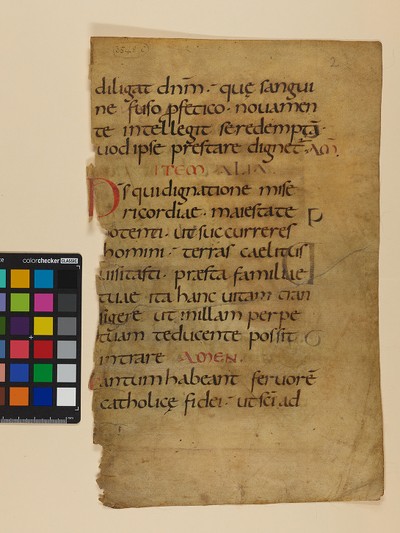 2
diligat dnm̄ · quę sangui
ne fuso ꝓfetico · nouamen
te intellegit se redemptā ·
uod ipse prestare dignet̄ · AM̄
ITEM ALIA
Ds̄ qui dignatione mise
ricordiae · maiestate
potenti · ut succurreres
homini · terras caelitus
uisitasti · praesta familiae
tuae ita hanc uitam tran
sigere ut in illam perpe
tuam te ducente possit
intrare AMEN
antum habeant feruorē
catholicę fidei · ut sc̄i ad